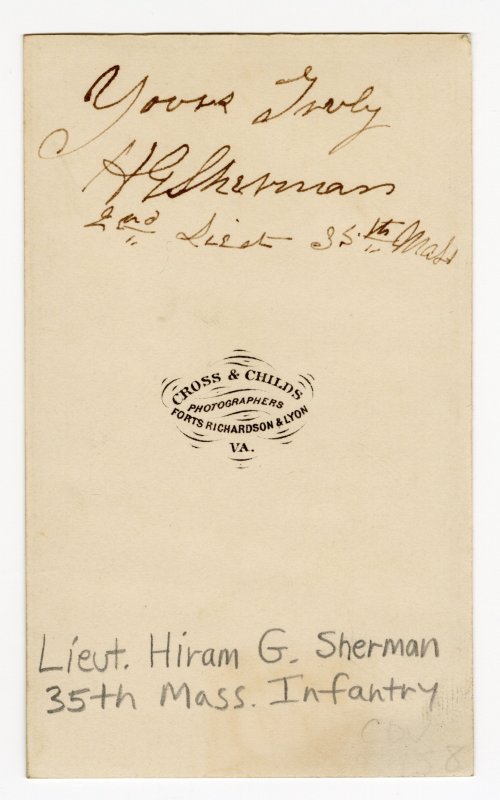 Yours Truly
HGSherman
2nd Lieut 35th Mass
CROSS & CHILDS
PHOTOGRAPHERS
FORTS RICHARDSON & LYON
VA.
Lieut. Hiram G. Sherman
35th Mass. Infantry
CDV